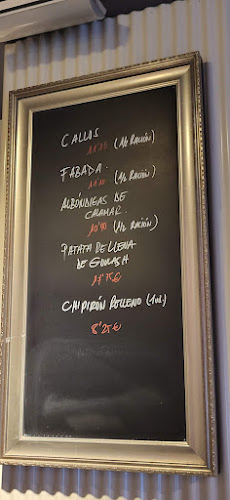 CALLOS
(1/2 RACIÓN)
FABADA.
(1/2 RACIÓN)
ALBÓNDIGAS DE
CALAMAR
10'90 (1/2 RACIÓN)
PATATA RELLENA
DE GOULASH
CHIPIRÓN RELLENO (1ud.)
8'25€